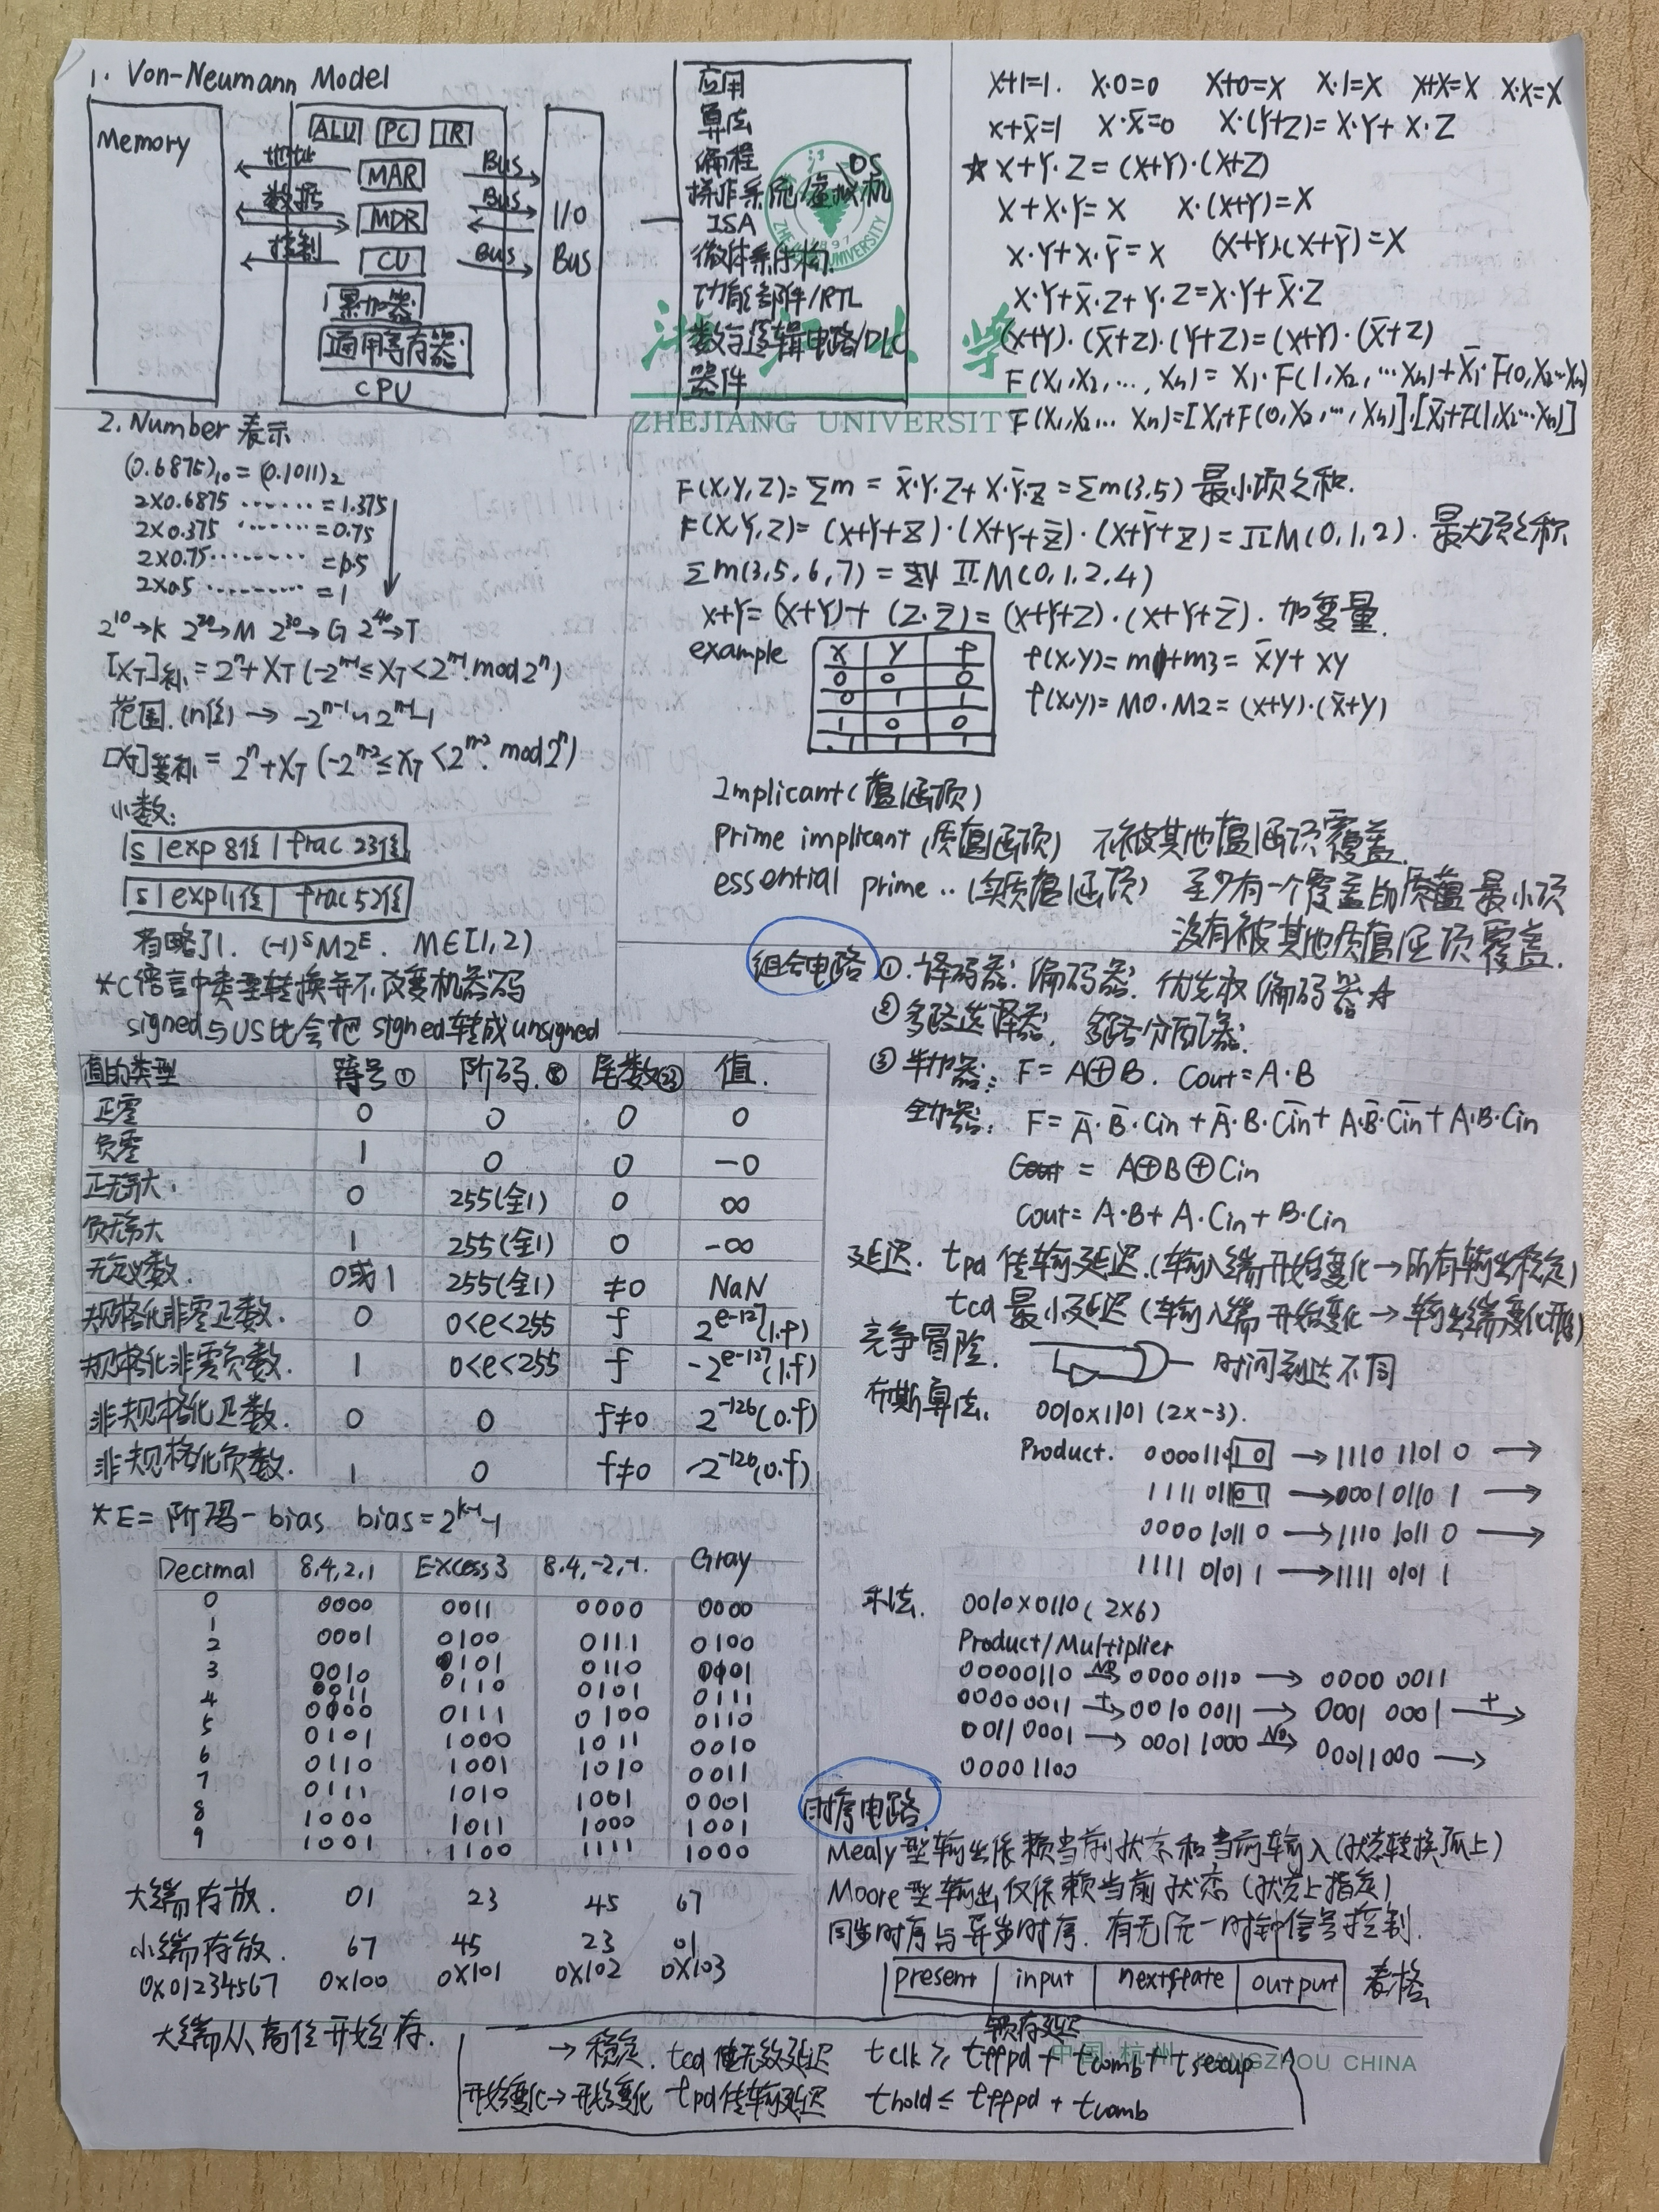 1. Von-Neumann Model
Memory
ALU PC IR
地址 MAR Bus
数据 MDR Bus
控制 CU Bus
累加器
通用寄存器
CPU
I/O
Bus
应用
算法
编程
操作系统/虚拟机 OS
ISA
微体系结构
功能部件/RTL
数字逻辑电路/DLC
器件
ZHEJIANG UNIVERSITY
X+1=1. X·0=0 X+0=X X·1=X X+X=X X·X=X
X+X̄=1 X·X̄=0 X·(Y+Z)=X·Y+X·Z
☆ X+Y·Z=(X+Y)·(X+Z)
X+X·Y=X X·(X+Y)=X
X·Y+X·Ȳ=X (X+Y)·(X+Ȳ)=X
X·Y+X̄·Z+Y·Z=X·Y+X̄·Z
(X+Y)·(X̄+Z)·(Y+Z)=(X+Y)·(X̄+Z)
F(X1,X2,...,Xn)=X1·F(1,X2,...Xn)+X̄1·F(0,X2...Xn)
F(X1,X2...Xn)=[X1+F(0,X2,...,Xn)]·[X̄1+F(1,X2...Xn)]
2. Number 表示
(0.6875)₁₀=(0.1011)₂
2×0.6875 ······=1.375
2×0.375 ······=0.75
2×0.75 ········=1.5
2×0.5 ·········=1
2¹⁰→K 2²⁰→M 2³⁰→G 2⁴⁰→T
[X_T]补=2ⁿ+X_T (-2ⁿ⁻¹≤X_T<2ⁿ⁻¹. mod 2ⁿ)
范围.(n位)→ -2ⁿ⁻¹~2ⁿ⁻¹-1
[X_T]变补=2ⁿ+X_T (-2ⁿ⁻²≤X_T<2ⁿ⁻². mod 2ⁿ)
小数:
s exp 8位 frac 23位
s exp 11位 frac 52位
省略了1. (-1)ˢM2ᴱ. M∈[1,2)
*C语言中类型转换并不改变机器码
signed与US比会把signed转成unsigned
F(X,Y,Z)=Σm=X̄·Y·Z+X·Ȳ·Z=Σm(3,5) 最小项之和.
F(X,Y,Z)=(X+Y+Z)·(X+Y+Z̄)·(X+Ȳ+Z)=ΠM(0,1,2). 最大项之积
Σm(3,5,6,7)=ΠM(0,1,2,4)
X+Y=(X+Y)+(Z·Z̄)=(X+Y+Z)·(X+Y+Z̄). 加变量.
example
X Y f
0 0 0
0 1 1
1 0 0
1 1 1
f(X,Y)=m1+m3=X̄Y+XY
f(X,Y)=M0·M2=(X+Y)·(X̄+Y)
Implicant(蕴涵项)
Prime implicant(质蕴涵项) 不被其他蕴涵项覆盖.
essential prime..(实质蕴涵项) 至少有一个覆盖的最小项
没有被其他质蕴涵项覆盖.
值的类型 符号① 阶码.⑧ 尾数㉓ 值.
正零 0 0 0 0
负零 1 0 0 -0
正无穷大. 0 255(全1) 0 ∞
负无穷大 1 255(全1) 0 -∞
无定义数. 0或1 255(全1) ≠0 NaN
规格化非零正数. 0 0<e<255 f 2^(e-127)(1.f)
规格化非零负数. 1 0<e<255 f -2^(e-127)(1.f)
非规格化正数. 0 0 f≠0 2⁻¹²⁶(0.f)
非规格化负数. 1 0 f≠0 -2⁻¹²⁶(0.f)
*E=阶码-bias bias=2ᵏ⁻¹-1
Decimal 8,4,2,1 Excess3 8,4,-2,-1. Gray
0 0000 0011 0000 0000
1 0001 0100 0111 0100
2 0010 0101 0110 0101
3 0011 0110 0101 0111
4 0100 0111 0100 0110
5 0101 1000 1011 0010
6 0110 1001 1010 0011
7 0111 1010 1001 0001
8 1000 1011 1000 1001
9 1001 1100 1111 1000
大端存放. 01 23 45 67
小端存放. 67 45 23 01
0x01234567 0x100 0x101 0x102 0x103
大端从高位开始存.
组合电路 ①.译码器. 编码器. 优先权编码器
②多路选择器. 多路分配器.
③半加器: F=A⊕B. Cout=A·B
全加器: F=Ā·B̄·Cin+Ā·B·C̄in+A·B̄·C̄in+A·B·Cin
=A⊕B⊕Cin
Cout=A·B+A·Cin+B·Cin
延迟. tpd 传输延迟.(输入端开始变化→所有输出稳定)
tcd 最小延迟(输入端开始变化→输出端变化开始)
竞争冒险. 时间到达不同
布斯算法. 0010×1101(2×-3).
Product. 00001101 0 →1110 1101 0 →
1111 0110 1 →0001 0110 1 →
0000 1011 0 →1110 1011 0 →
1111 0101 1 →1111 0101 1
乘法. 0010×0110(2×6)
Product/Multiplier
00000110 NO→ 0000 0110 → 0000 0011
00000011 +→ 0010 0011 → 0001 0001 +→
0011 0001 → 0001 1000 No→ 00011000 →
0000 1100
时序电路
Mealy型输出依赖当前状态和当前输入(状态转换弧上)
Moore型输出仅依赖当前状态(状态上指定)
同步时序与异步时序. 有无统一时钟信号控制.
present input nextstate output 表格
→稳定. tcd 无效延迟 tclk≥tffpd+tcomb+tsetup
开始变化→开始变化 tpd 传输延迟 thold≤tffpd+tcomb
中国 杭州 HANGZHOU CHINA